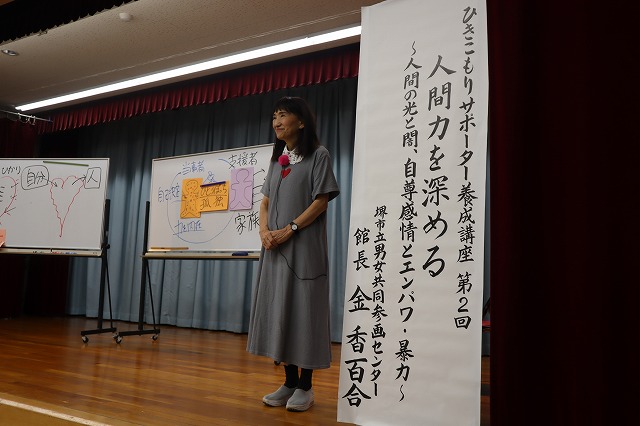 ひきこもりサポーター養成講座 第2回
人間力を深める
～人間の光と闇、自尊感情とエンパワ・暴力～
堺市立男女共同参画センター
館長 金 香百合
ひかり
自分
人
当事者
支援者
家族
孤独